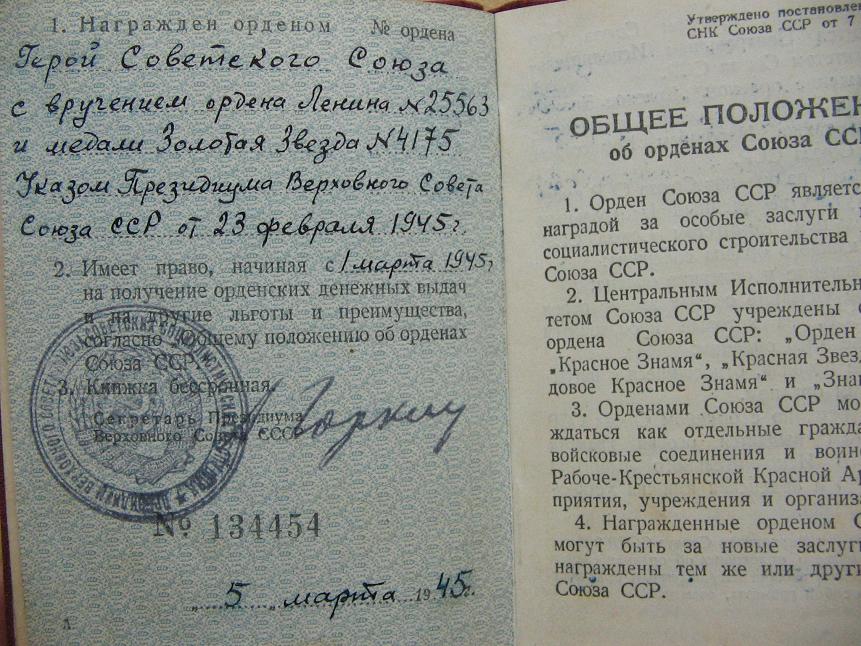 1. Награжден орденом № ордена
Герой Советского Союза
с вручением ордена Ленина №25563
и медали Золотая Звезда №4175
Указом Президиума Верховного Совета
Союза ССР от 23 февраля 1945г.
2. Имеет право, начиная с 1 марта 1945г
на получение орденских денежных выдач
и на другие льготы и преимущества,
согласно Общему положению об орденах
Союза ССР.
3. Книжка бессрочная.
Секретарь Президиума
Верховного Совета СССР
Горкин
№ 134454
„ 5 „ марта 1945г.
Утверждено постановлен
СНК Союза ССР от 7
ОБЩЕЕ ПОЛОЖЕН
об орденах Союза ССР
1. Орден Союза ССР является
наградой за особые заслуги
социалистического строительства
Союза ССР.
2. Центральным Исполнительн
тетом Союза ССР учреждены с
ордена Союза ССР: „Орден
„Красное Знамя“, „Красная Звезд
довое Красное Знамя“ и „Зна
3. Орденами Союза ССР мо
ждаться как отдельные гражда
войсковые соединения и воин
Рабоче-Крестьянской Красной Ар
приятия, учреждения и организа
4. Награжденные орденом С
могут быть за новые заслуги
награждены тем же или други
Союза ССР.